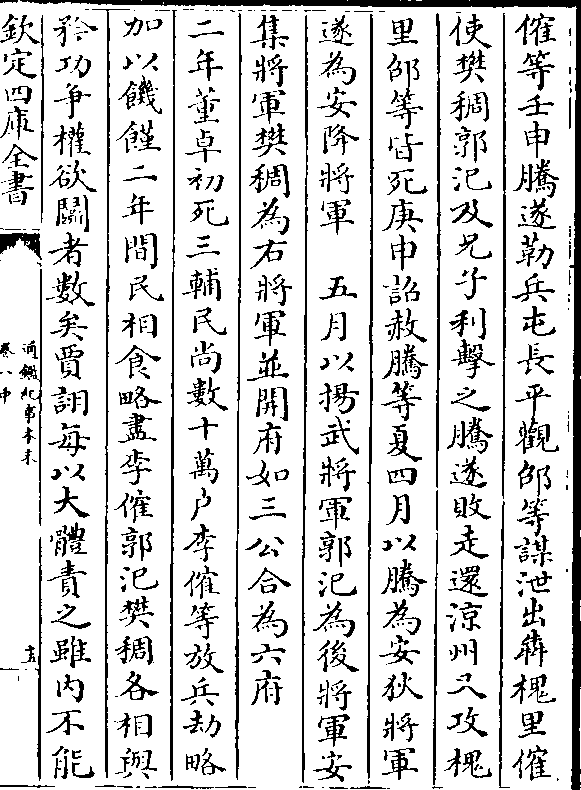 傕等壬申騰遂勒兵屯長平觀邰等謀泄出奔槐里傕
使樊稠郭汜及兄子利擊之騰遂敗走還涼州又攻槐
里邰等皆死庚申詔赦騰等夏四月以騰為安狄將軍
遂為安降將軍　五月以揚武將軍郭汜為後將軍安
集將軍樊稠為右將軍並開府如三公合為六府
二年董卓初死三輔民尚數十萬戶李傕等放兵劫略
加以饑饉二年間民相食略盡李傕郭汜樊稠各相與
矜功爭權欲鬭者數矣賈詡每以大體責之雖内不能
欽定四庫全書
通鑑紀事本末
卷八中